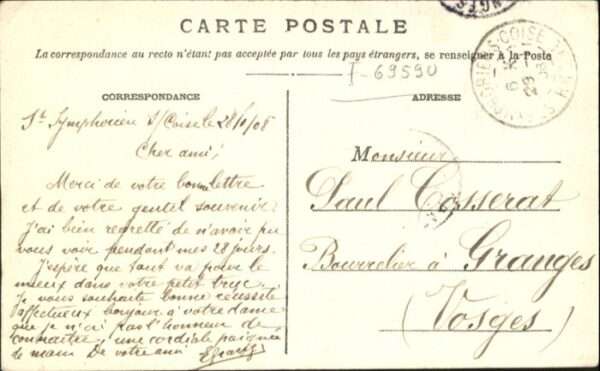 CARTE POSTALE
La correspondance au recto n'étant pas acceptée par tous les pays étrangers, se renseigner à la Poste
I-69590
CORRESPONDANCE
ADRESSE
St Symphorien s/Coise le 28/1/08
Cher ami,
Merci de votre bonne lettre
et de votre gentil souvenir.
J'ai bien regretté de n'avoir pu
vous voir pendant mes 28 jours.
J'espère que tout va pour le
mieux dans votre petit truc.
Je vous souhaite bonne réussite
affectueux bonjour à votre dame
que je n'ai pas l'honneur de
connaître, une cordiale poignée
de main De votre ami
Monsieur
Paul Cosserat
Bourrelier à Granges
(Vosges)